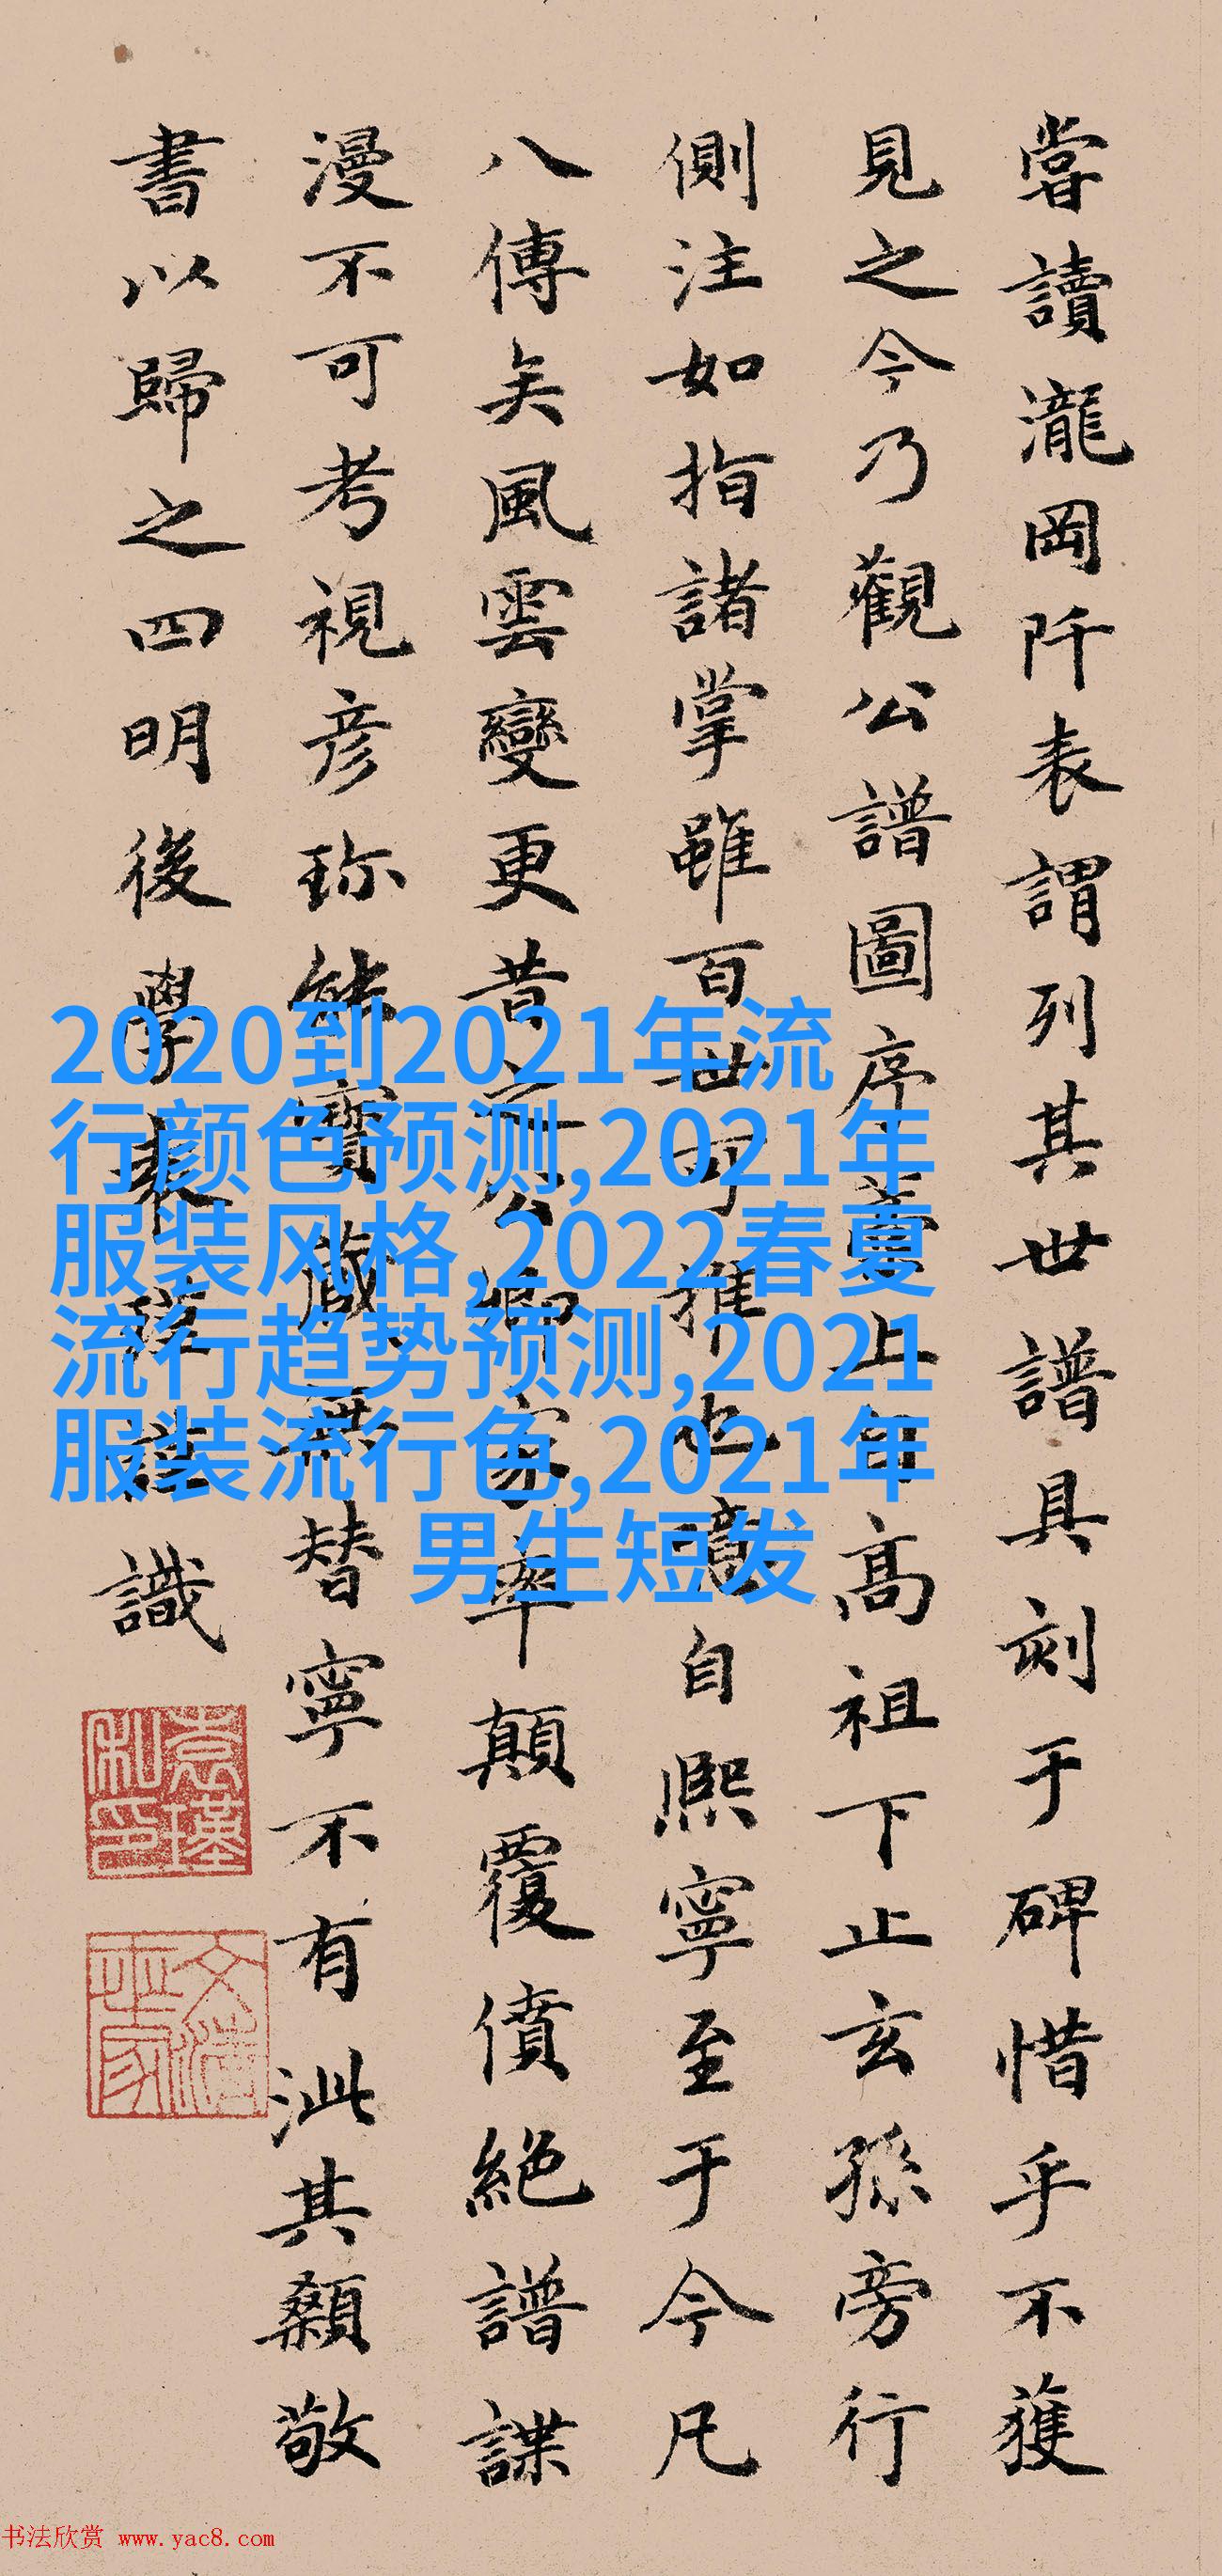 嘗讀瀧岡阡表謂列其世譜具刻于碑惜乎不獲
見之今乃觀公譜圖序上高祖下止玄孫旁行
側注如指諸掌雖百世可推也自熙寧至于今凡
八傳矣風雲變更昔之公卿家率顛覆債絕譜諜
漫不可考視彥珎能寶藏無替寧不有泚其顙敬
書以歸之四明後學袁識
2020到2021年流
行颜色预测,2021年
服装风格,2022春夏
流行趋势预测,2021
服装流行色,2021年
男生短发
书法欣赏 www.yac8.com